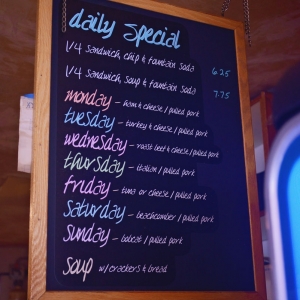 daily special
1/4 sandwich, chip & fountain soda 6.25
1/4 sandwich, soup & fountain soda 7.75
monday - ham & cheese / pulled pork
tuesday - turkey & cheese / pulled pork
wednesday - roast beef & cheese / pulled pork
thursday - italian / pulled pork
friday - tuna or cheese / pulled pork
saturday - beachcomber / pulled pork
sunday - bobcat / pulled pork
soup w/ crackers & bread